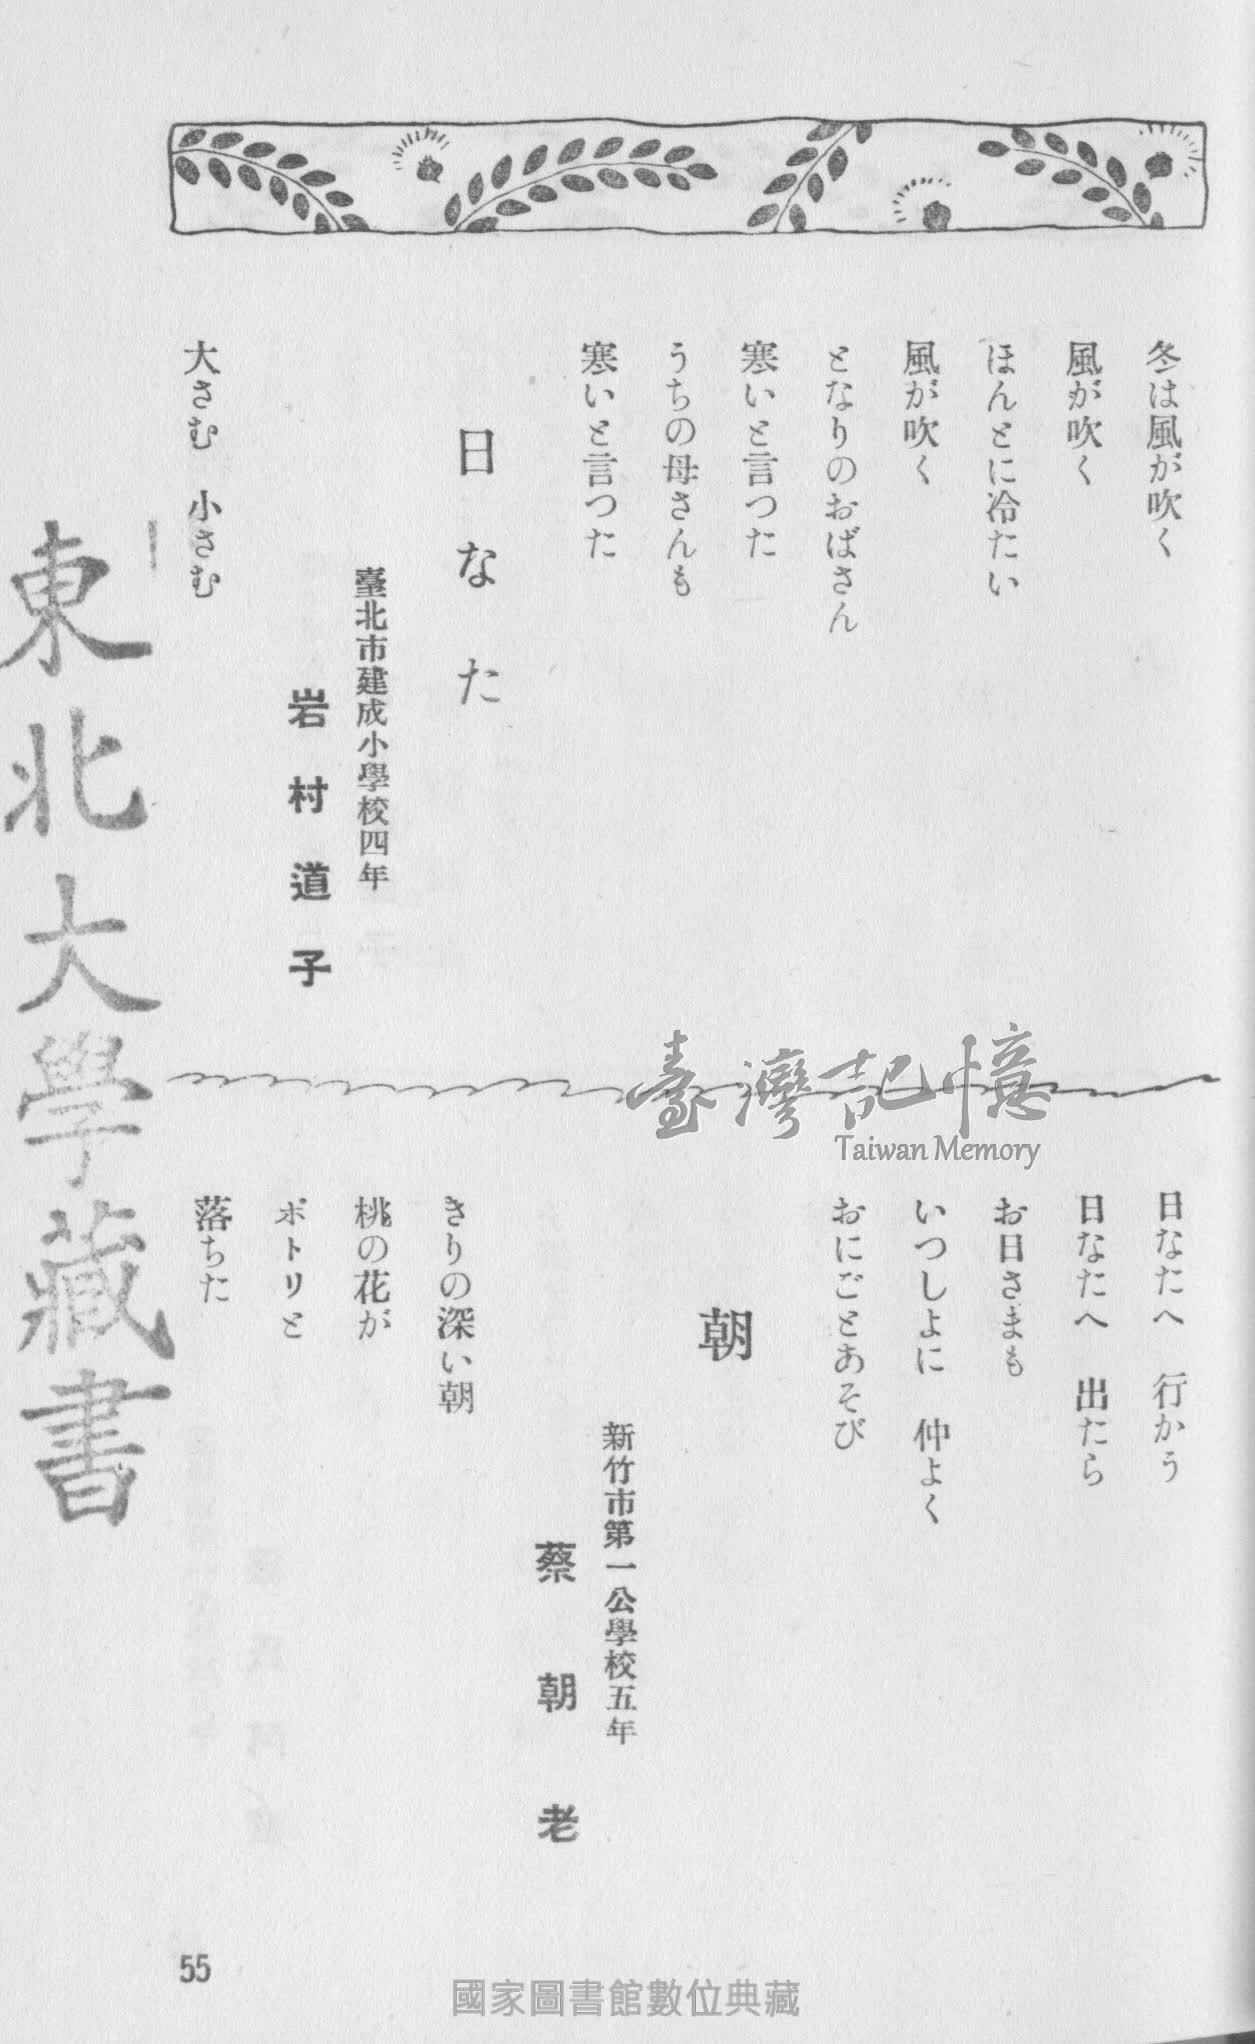 冬は風が吹く
風が吹く
ほんとに冷たい
風が吹く
となりのおばさん
寒いと言つた
うちの母さんも
寒いと言つた
日なた
臺北市建成小學校四年
岩村道子
大さむ　小さむ
日なたへ　行かう
日なたへ　出たら
お日さまも
いつしよに　仲よく
おにごとあそび
朝
新竹市第一公學校五年
蔡朝老
きりの深い朝
桃の花が
ポトリと
落ちた
55
東北大學藏書
臺灣記憶
Taiwan Memory
國家圖書館數位典藏